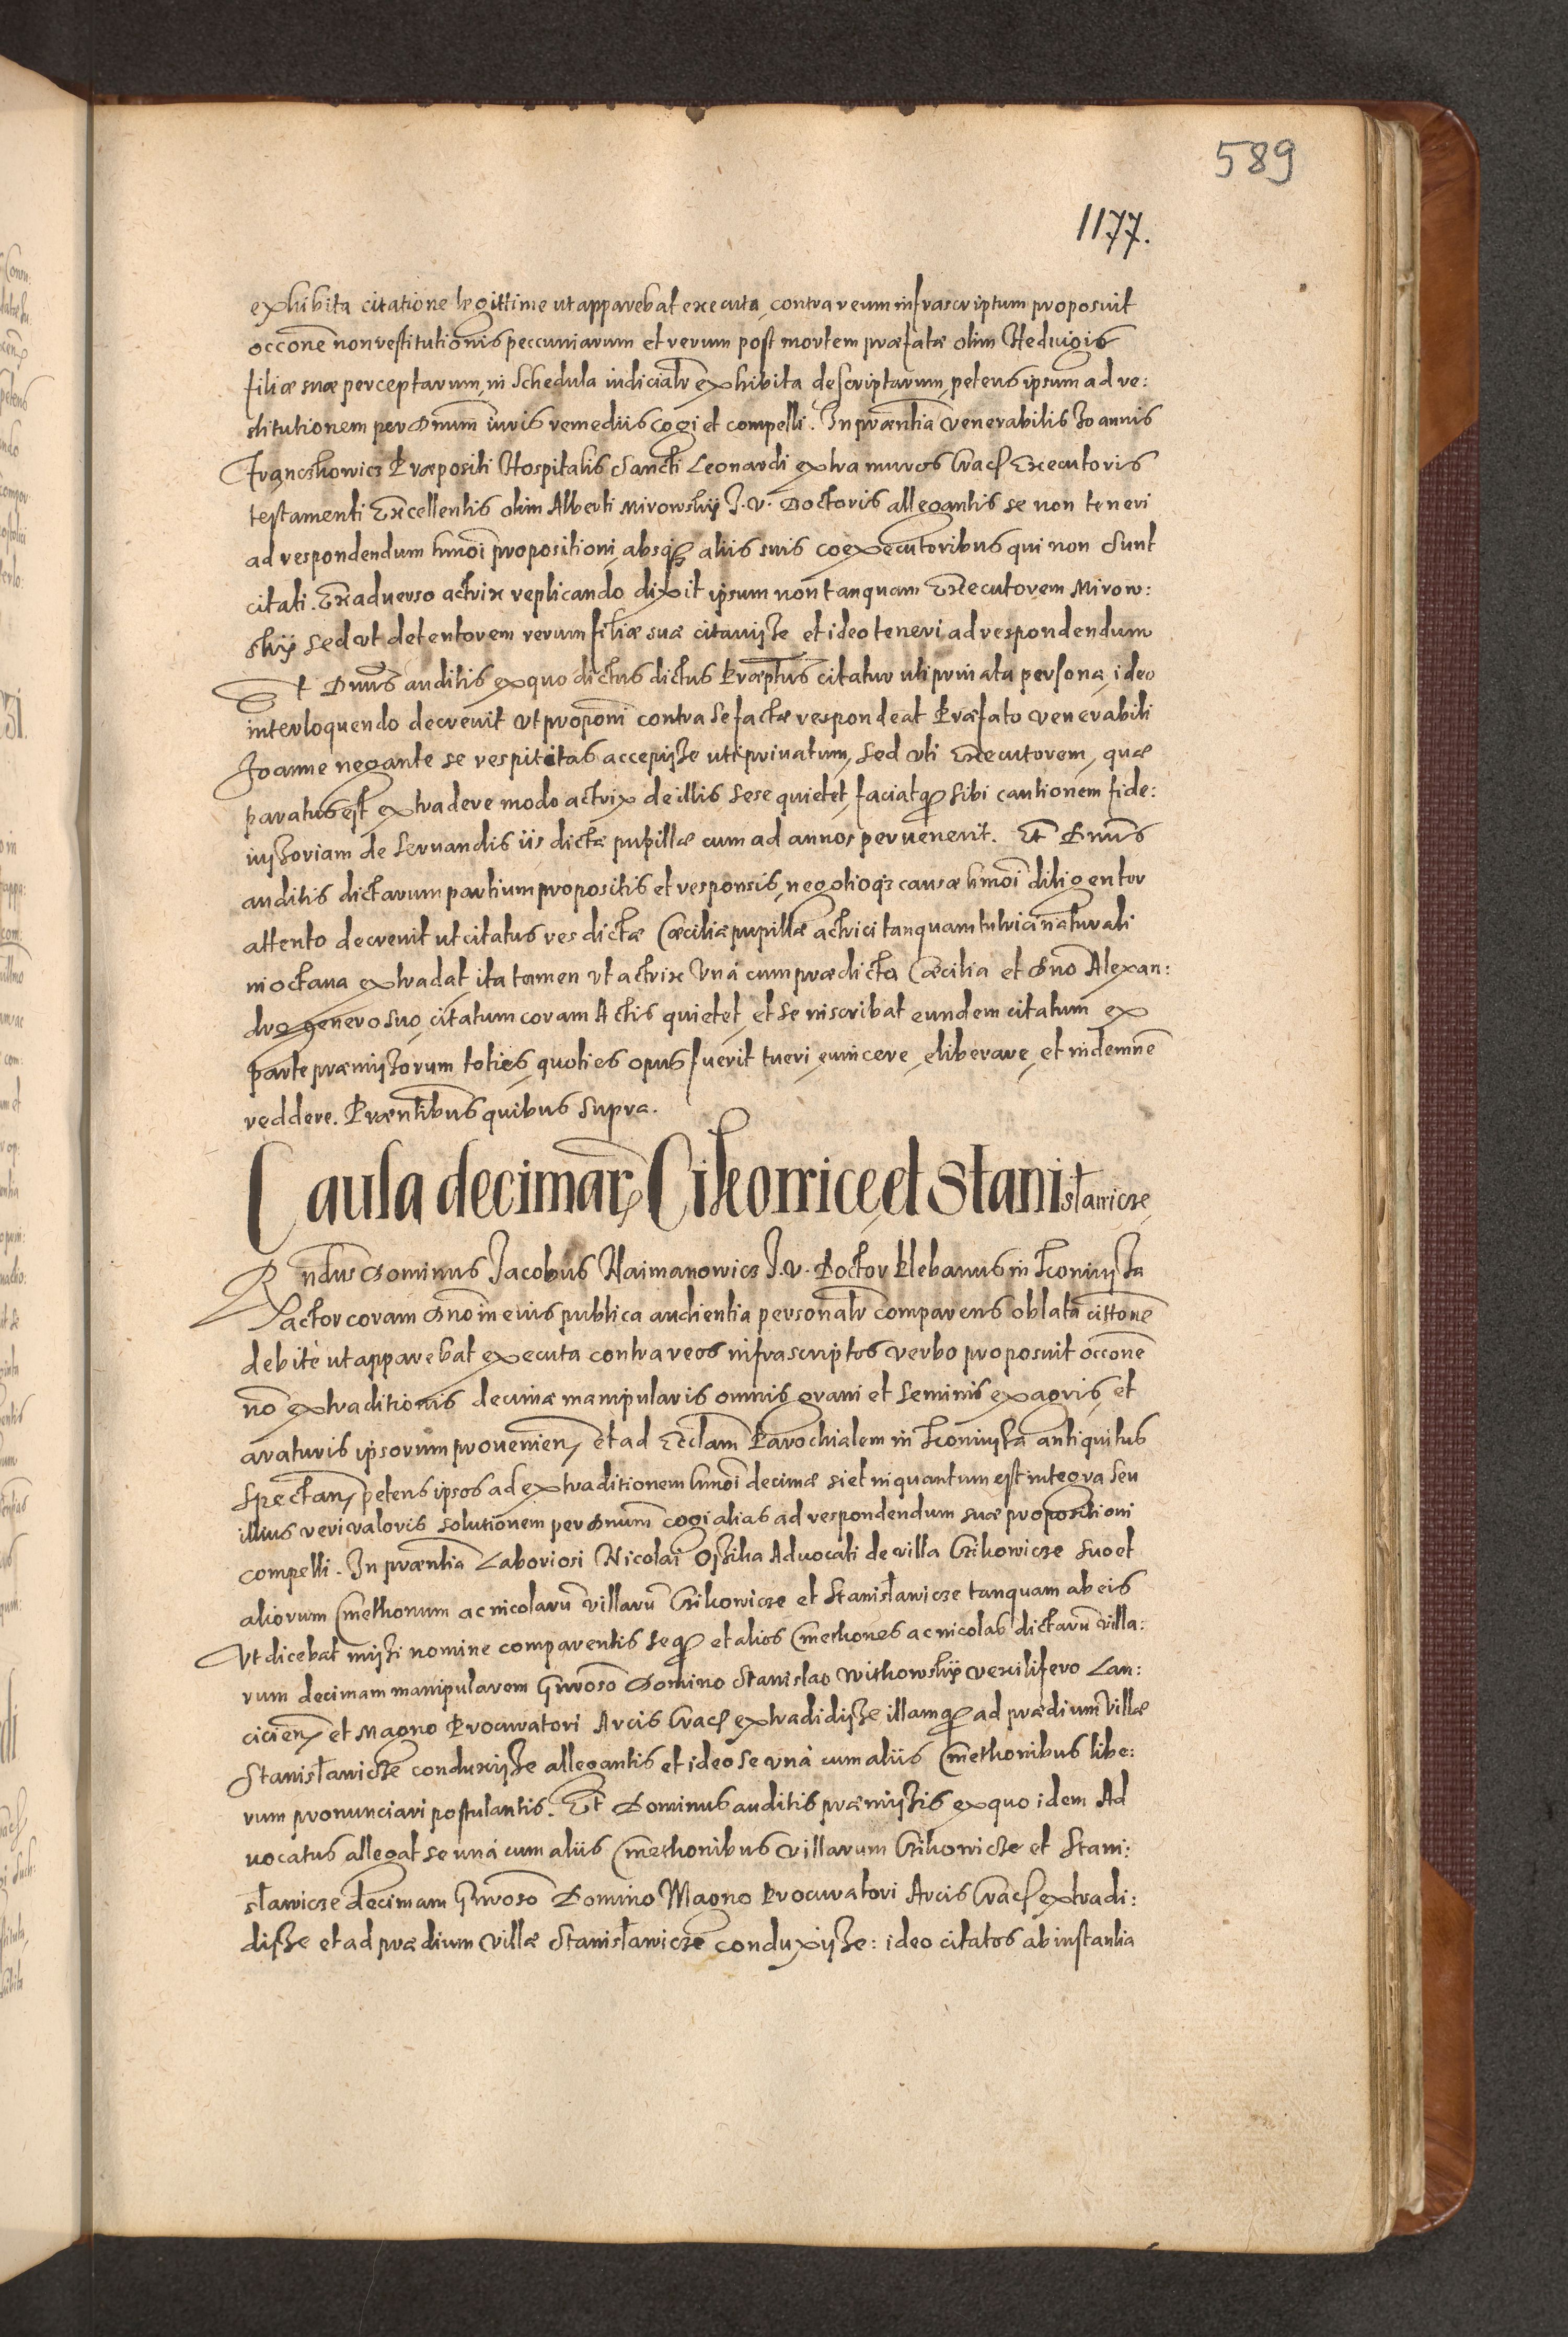 589
1177.
exhibita citatione legittime ut apparebat executa, contra reum infrascriptum proposuit
occone̅ non restitutionis peccuniarum et rerum post mortem præfatæ olim Heduigis
filiæ suæ perceptarum, in Schedula iudicialr̅ exhibita descriptarum, petens ipsum ad re:
stitutionem per Dnum̅ iuris remediis cogi et compelli. In præntia̅ Venerabilis Joannis
Franczkowicz Præpositi Hospitalis Sancti Leonardi extra muros Crac̅ Executoris
testamenti Excellentis olim Alberti Mirowskij J. V. Doctoris allegantis se non teneri
ad respondendum hmoi̅ propositioni, absq3 aliis suis coexecutoribus qui non sunt
citati. Ex aduerso actrix replicando dixit ipsum non tanquam Executorem Mirow:
skij sed ut detentorem rerum filiæ suæ citauisse et ideo teneri ad respondendum
Et Dnus̅ auditis ex quo dictus dictus Præptus̅ citatur uti priuata persona, ideo
interloquendo decreuit ut proponi̅ contra se factæ respondeat Præfato Venerabili
Joanne negante se res pititas accepisse uti priuatum, sed uti Executorem, quæ
paratus est extradere modo actrix de illis sese quietet, faciatq3 sibi cautionem fide:
iussoriam de seruandis iis dictæ pupillæ cum ad annos peruenerit. Et Dnus̅
auditis dictarum partium propositis et responsis, negotioq3 causæ hmoi̅ diligenter
attento decreuit ut citatus res dictæ Cæciliæ pupillæ actrici tanquam tutrici naturali
in octaua extradat, ita tamen ut actrix unà cum prædicta Cæcilia et Dno̅ Alexan:
dro genero suo, citatum coram Actis quietet, et se inscribat eundem citatum ex
parte præmissorum toties, quoties opus fuerit tueri, euincere, eliberare, et indemne̅
reddere. Præntibus̅ quibus supra.
Causa decimar̅ Cikowice et Stanisławicze
Rndus̅ Dominus Jacobus Naimanowicz J. V. Doctor Plebanus in
actor coram Dno̅ in eius publica audientia personalr̅ comparens oblata cittone̅
debitè ut apparebat executa contra reos infrascriptos verbo proposuit occone̅
no̅ extraditionis decimæ manipularis omnis grani et seminis ex agris, et
araturis ipsorum prouenien̅ et ad Ecclam̅ Parochialem in antiquitus
spectan̅ petens ipsos ad extraditionem hmoi̅ decimæ si et in quantum est integra seu
illius veri valoris solutionem per Dnum̅ cogi alias ad respondendum suæ propositioni
compelli. In præntia̅ Laboriosi Nicolai Aduocati de villa Czikowicze suo et
aliorum Cmethonum ac incolaru̅ villaru̅ Czikowicze et Stanisławicze tanquam ab eis
ut dicebat missi nomine comparentis seq3 et alios Cmethones ac incolas dictaru̅ villa:
rum decimam manipularem Gnroso̅ Domino Stanislao Withowskij vexilifero Lan:
cicien̅ et Magno Procuratori Arcis Crac̅ extradidisse illamq3 ad prædium villæ
Stanisławicze conduxisse allegantis et ideo se unà cum aliis Cmethonibus libe:
rum pronunciari postulantis. Et Dominus auditis præmissis ex quo idem Ad
uocatus allegat se unà cum aliis Cmethonibus villarum Czikowicze et Stani:
sławicze decimam Gnroso̅ Domino Magno Procuratori Arcis Crac̅ extradi:
disse et ad prædium villæ Stanisławicze conduxisse: ideo citatos ab instantia